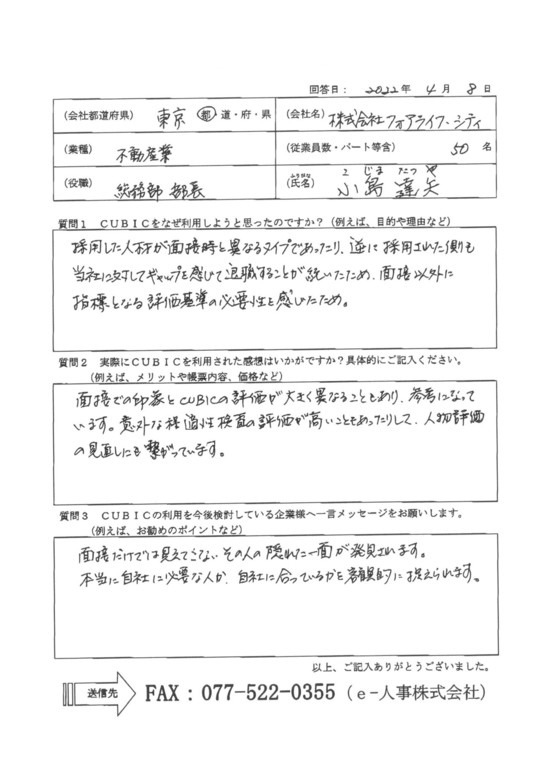 回答日： 2022年 4月 8日
（会社都道府県） 東京 都・道・府・県 （会社名） 株式会社フォアライフ・シティ
（業種） 不動産業 （従業員数・パート等含） 50 名
（役職） 総務部 部長 （氏名） 小島 達矢
ふりがな こじま たつや
質問１ ＣＵＢＩＣをなぜ利用しようと思ったのですか？（例えば、目的や理由など）
採用した人材が面接時と異なるタイプであったり、逆に採用された側も
当社に対してギャップを感じて退職することが続いたため、面接以外に
指標となる評価基準の必要性を感じたため。
質問２ 実際にＣＵＢＩＣを利用された感想はいかがですか？具体的にご記入ください。
（例えば、メリットや帳票内容、価格など）
面接での印象とCUBICの評価が大きく異なることもあり、参考になって
います。意外な程適性検査の評価が高いこともあったりして、人物評価
の見直しにも繋がっています。
質問３ ＣＵＢＩＣの利用を今後検討している企業様へ一言メッセージをお願いします。
（例えば、お勧めのポイントなど）
面接だけでは見えてこないその人の隠れた一面が発見されます。
本当に自社に必要な人か、自社に合っているかを客観的に捉えられます。
以上、ご記入ありがとうございました。
送信先 FAX：077-522-0355（ｅ-人事株式会社）